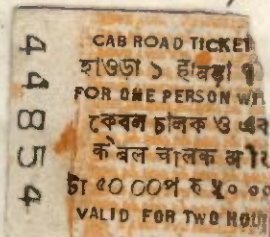 44854
CAB ROAD TICKET
হাওড়া ১ हावड़ा
FOR ONE PERSON WI
কেবল চালক ও
केवल चालक
টা ৫০ 00প रु ५० ००
VALID FOR TWO HOU